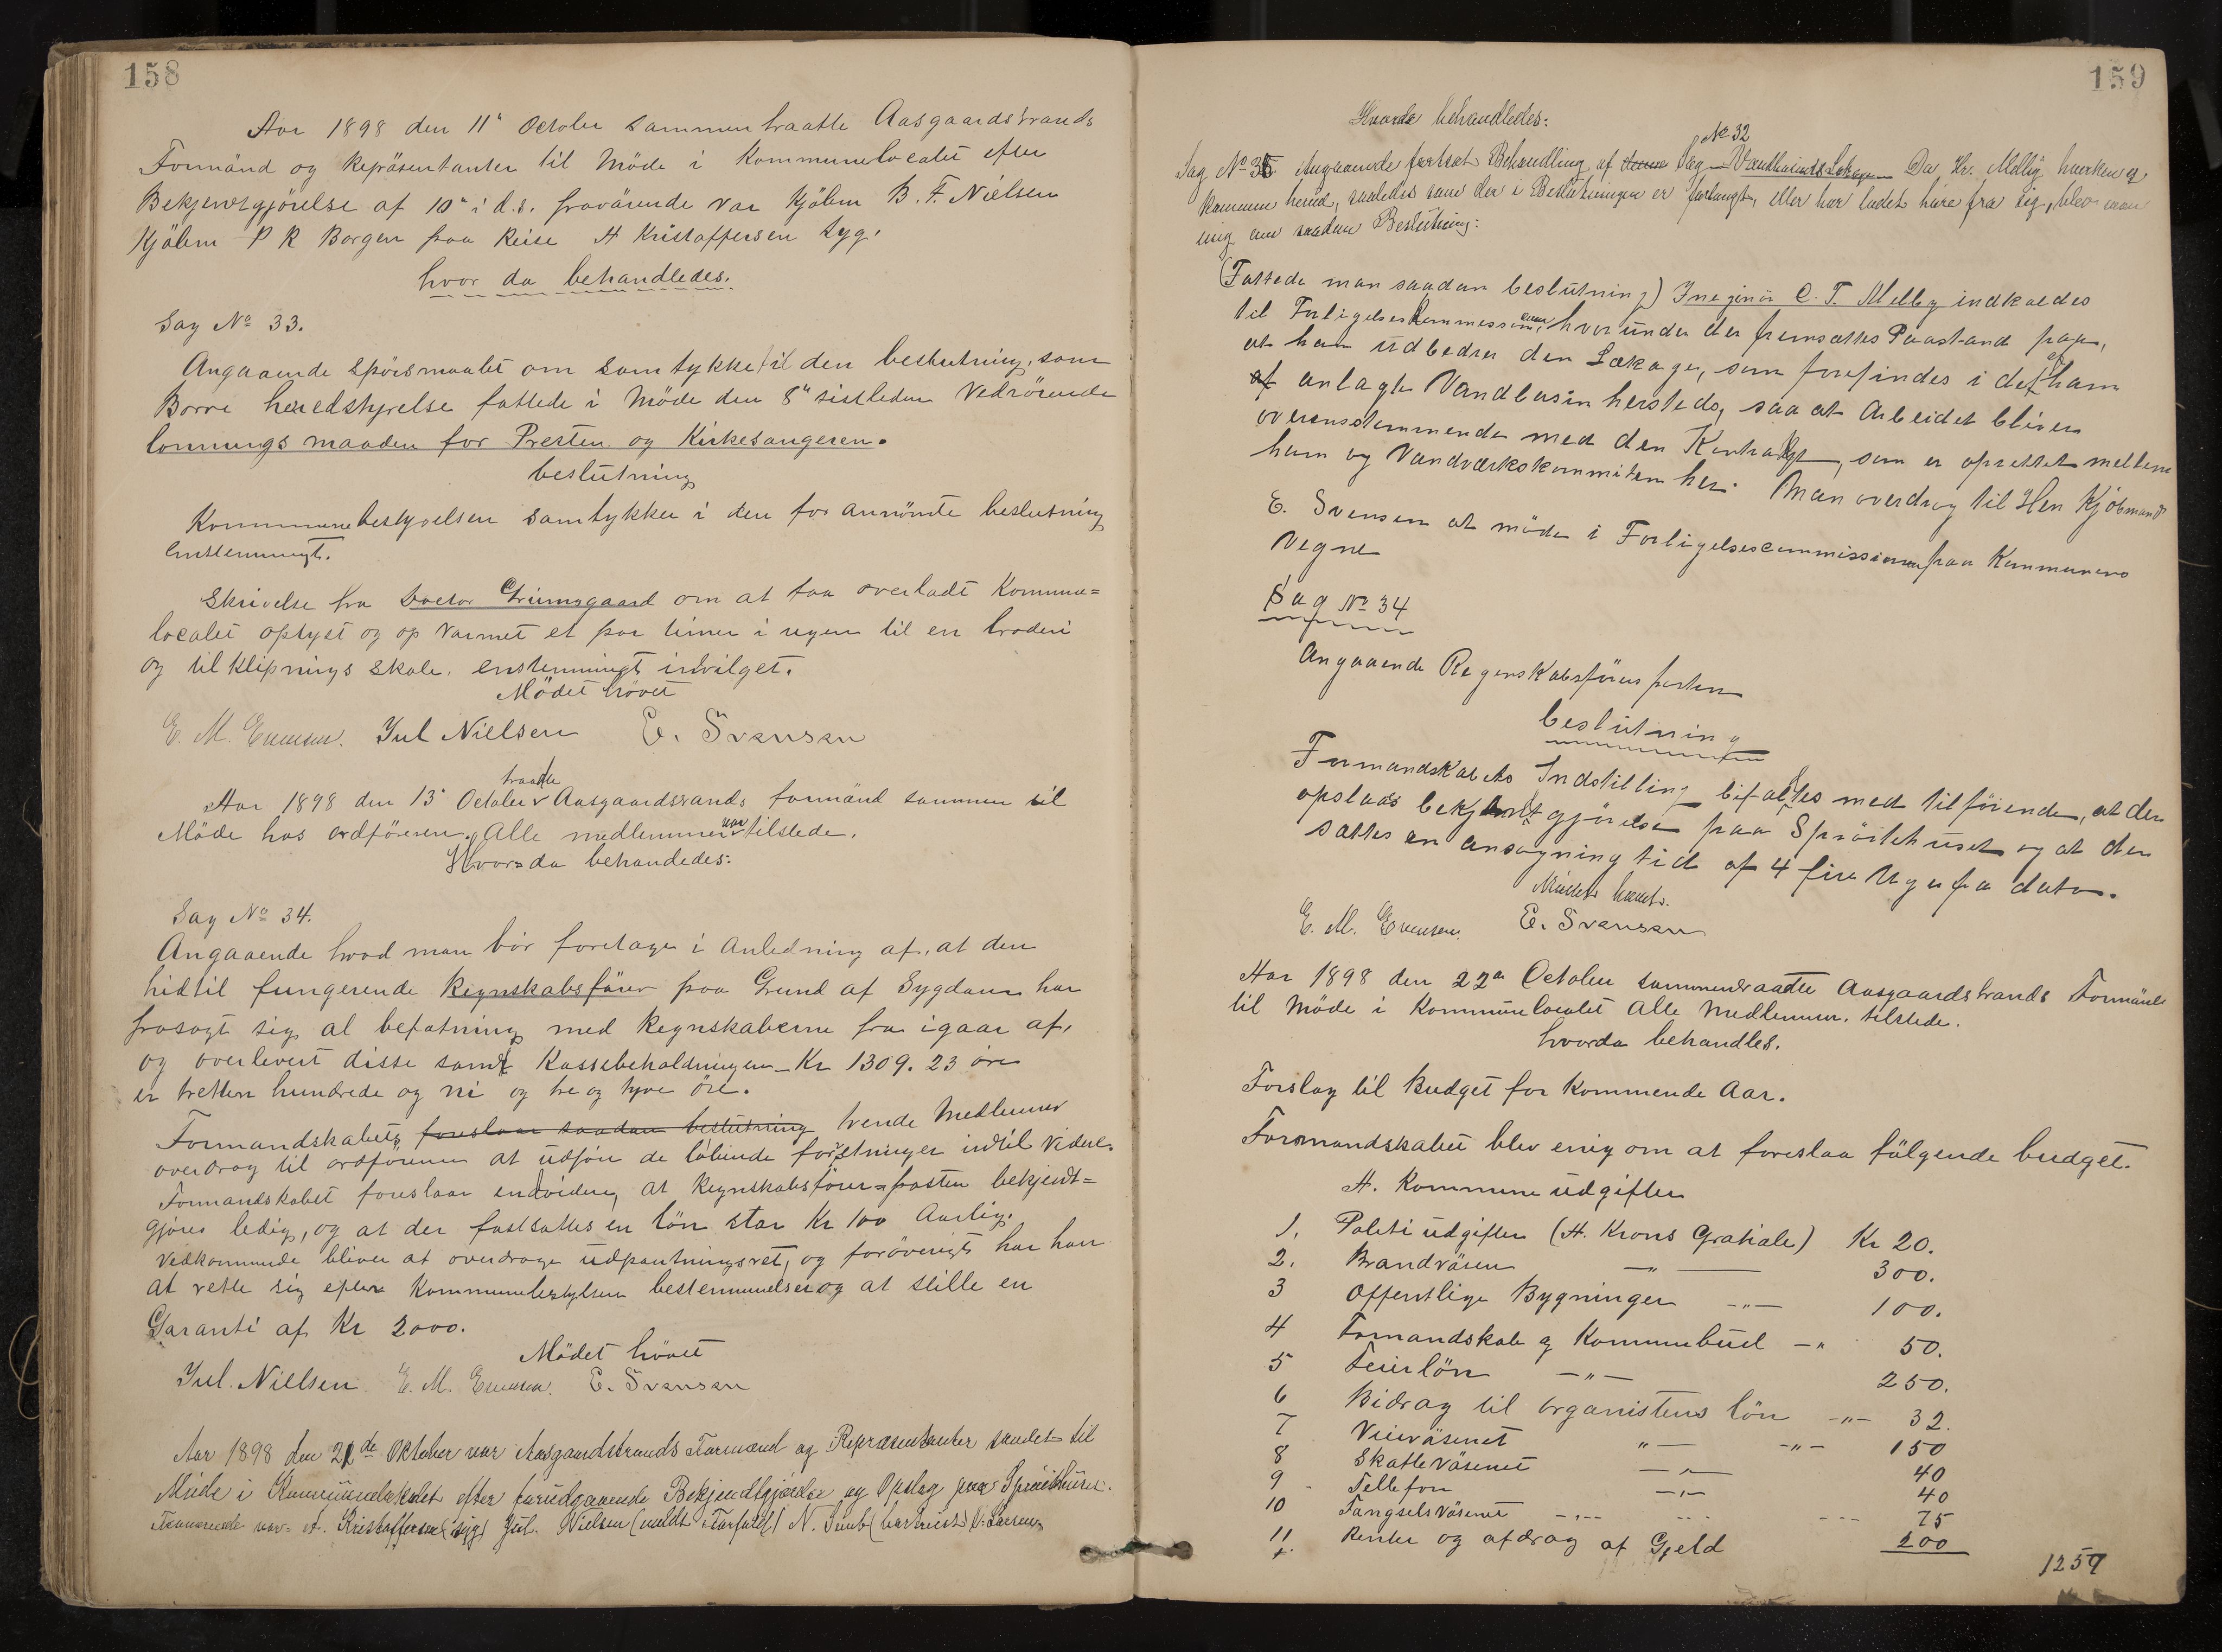 158
Aar 1898 den 11te October sammentraatte Aasgaardstrands
Formänd og Repräsentanter til Möde i Kommunelocalet efter
Bekjentgjörelse af 10de i d.s. fraværende var Kjöbm B. F. Nielsen
Kjöbm P R Borgen paa Reise A Kristoffersen Syg.
hvor da behandledes.
Sag No 33.
Angaaende Spörsmaalet om Samtykke til den beslutning, som
Borre heredstyrelse fattede i Möde den 8de sistleden Vedrörende
lönnings maaden for Presten og Kirkesangeren.
beslutning
Kommunebestyrelsen Samtykker i den for annömte beslutning
Enstemmigt.
Skrivelse fra Doctor Grimsgaard om at faa overladt Kommune=
localet oplyst og op Varmet et par timer i ugen til en broderi
og tilklipnings Skole. enstemmigt indvilget.
Mödet hövet
E. M. Evensen. Jul Nielsen E. Svensen
traadte
Aar 1898 den 13de October Aasgaardstrands formänd sammen til
Möde hos ordföreren. Alle medlemmer var tilstede.
Hvor da behandledes:
Sag No 34.
Angaaende hvad man bör foretage i Anledning af, at den
hidtil fungerende Regnskabsförer paa Grund af Sygdom har
frasagt sig al befatning med Regnskaberne fra igaar af,
og overlevert disse samt Kassebeholdningen – Kr 1309. 23 öre
er tretten hundrede og ni og tre og tyve öre.
Formandskabets foreslaar saadan beslutning trende Medlemmer
overdrog til ordföreren at udföre de löbende forretninger indtil Videre.
Formandskabet foreslaar endvidere, at Regnskabsförer=posten bekjendt=
gjöres ledig, og at der fastsattes en lön stor Kr 100 Aarlig.
Vedkommende bliver at overdrage udpantningsret, og forövrigt har han
at rette sig efter Kommunebestyrelsens bestemmelser og at stille en
Garanti af Kr 2000.
Mödet hövet
Jul. Nielsen E. M. Evensen. E. Svensen
Aar 1898 den 21de Oktober var Aasgaardstrands Formænd og Repræsentanter samlet til
Möde i Kommunelokalet efter forudgaaende Bekjendtgjørelse og Opslag paa Spröithuset.
Fraværende var: A. Kristoffersen (syg) Jul. Nielsen (meldt Forfald) N. (bortreist) Larsen
159
Hvorda behandledes:
No 32
Sag No 35 Angaaende fortsat Behandling af denne Sag – Vandbasinets Lekage – Da Hr. Melby hverken er
kommen herned, saaledes som der i Beslutningen er forlangt, eller har ladet høre fra sig, blev man
enig om saadan Beslutning:
(Fattede man saadan beslutning) Ingeniör C. T. Melby indkaldes
til Forligelseskommissionen, hvorunder der fremsættes Paastand paa,
at han udbedrer den Lækage, som forefindes i det af ham
af anlagte Vandbasin hersteds, saa at Arbeidet bliver
overensstemmende med den Kontrakt, som er oprettet mellem
ham og Vandværkskommiteen her. Man overdrog til Herr Kjöbmand
E. Svensen at möde i Forligelsescommissionen paa Kommunens
Vegne
Sag No 34
Angaaende Regenskabsförer posten
beslutning
Formandskabets Indstilling bifaltes med tilföiende, at der
opslaas bekjentgjörelse paa Spröitehuset og at der
sættes en ansögning tid af 4 fire Uger fra dato.
Mödet hævet.
E. M. Evensen. E. Svensen
Aar 1898 den 22de October sammentraadte Aasgaardstrands Formänd
til Möde i Kommunelocalet Alle Medlemmer. tilstede.
hvorda behandles.
Forslag til Budget for Kommende Aar.
Formandskabet blev enig om at foreslaa fölgende budget.
A. Kommune udgifter
1. Politi udgifter (A. Krons Gratiale) Kr 20.
2. Brandväsen –"– 300.
3 Offentlige Bygninger –"– 100.
4 Formandskab og Kommunebud –" 50.
5 Feierlön –"– 250.
6 Bidrag til organistens lön –"– 32.
7 Veiväsenet "– –"– 150
8 Skatteväsenet –"– 40
9 Tellefon –"– 40
10 Fängselsväsenet –"– 75
11 Renter og afdrag af Gjeld 200
1257